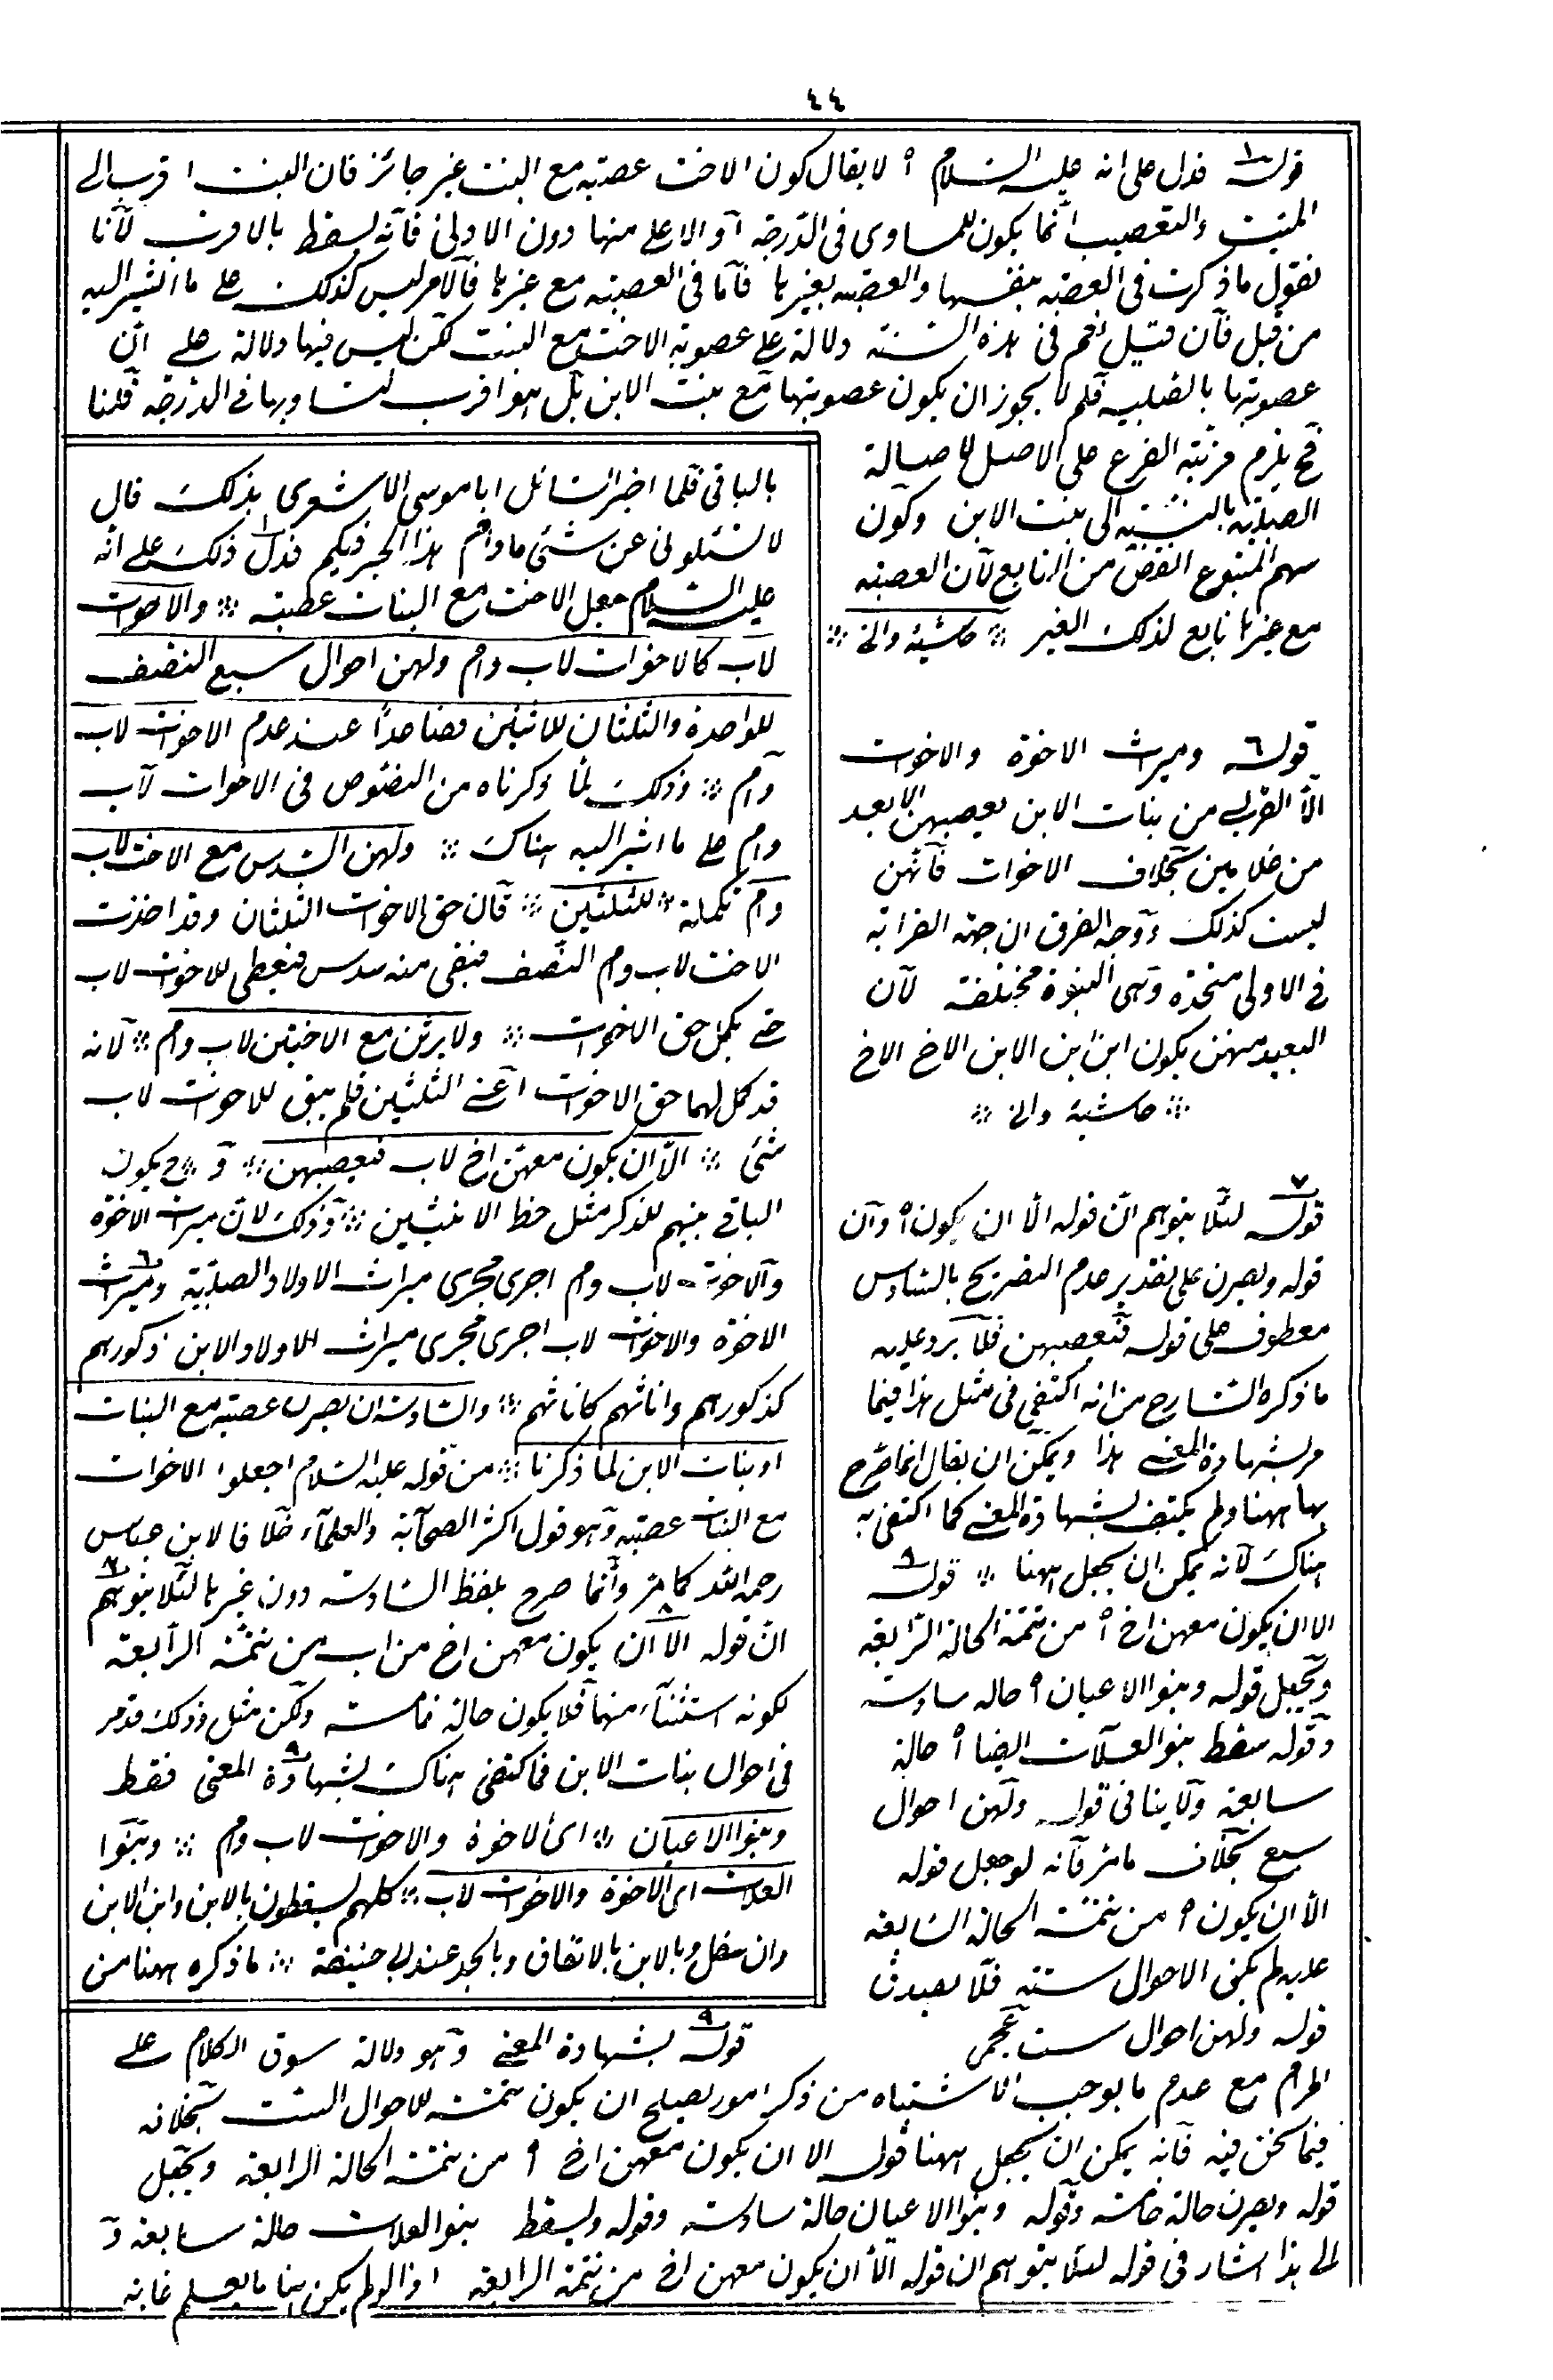 ٤٤
قوله فدل على انه عليه السلام اه لا يقال كون الاخت عصبة مع البنت غير جائز فان البنت اقرب الى
الميت والتعصيب انما يكون للمساوى فى الدرجة او الاعلى منها دون الادنى فانه يسقط بالاقرب لانا
نقول ما ذكرت فى العصبة بنفسها والعصبة بغيرها فاما فى العصبة مع غيرها فالامر ليس كذلك على ما اشير اليه
من قبل فان قيل نعم فى هذه السنة دلالة على عصوبة الاخت مع البنت لكن ليس فيها دلالة على ان
عصوبتها بالصلبية فلم لا يجوز ان يكون عصوبتها مع بنت الابن بل هو اقرب لتساويها فى الدرجة قلنا
فح يلزم مزية الفرع على الاصل لاصالة
الصلبية بالنسبة الى بنت الابن وكون
سهم المتبوع انقص من التابع لان العصبة
مع غيرها تابع لذلك الغير حاشية والى
قوله ٦ وميراث الاخوة والاخوات
الا القربى من بنات الابن يعصبهن الابعد
من غلامين بخلاف الاخوات فانهن
ليست كذلك ووجه الفرق ان جهة القرابة
فى الاولى متحدة وهى البنوة مختلفة لان
البعيد منهن يكون ابن ابن الابن الاخ الاخ
حاشية والى
قوله ٧ لئلا يتوهم ان قوله الا ان يكون اه وان
قوله ويصرن على تقدير عدم التصريح بالسادس
معطوف على قوله فيعصبهن فلا يرد عليه
ما ذكره الشارح من انه اكتفى فى مثل هذا فيما
مر بشهادة المعنى هذا ويمكن ان يقال انما صرح
بها ههنا ولم يكتف بشهادة المعنى كما اكتفى به
هناك لانه يمكن ان يجعل ههنا قوله ٨
الا ان يكون معهن اخ اه من تتمة الحالة الرابعة
ويجعل قوله وبنو الاعيان اه حالة سادسة
وقوله سقط بنو العلات ايضا اه حالة
سابعة ولا ينافى قوله ولهن احوال
سبع بخلاف ما مر فانه لو جعل قوله
الا ان يكون اه من تتمة الحالة السابعة
عليه لم يكن الاحوال ستة فلا يصدق
قوله ولهن احوال ست عجمى
بالباقى فلما اخبر السائل ابا موسى الاشعرى بذلك قال
لا تسئلونى عن شئ ما دام هذا الحبر فيكم فدل ذلك على انه
عليه السلام جعل الاخت مع البنات عصبة والاخوات
لاب كالاخوات لاب وام ولهن احوال سبع النصف
للواحدة والثلثان للاثنتين فصاعدا عند عدم الاخوات لاب
وام وذلك لما ذكرناه من النصوص فى الاخوات لاب
وام على ما اشير اليه هناك ولهن السدس مع الاخت لاب
وام تكملة للثلثين فان حق الاخوات الثلثان وقد اخذت
الاخت لاب وام النصف فبقى منه سدس فيعطى للاخوات لاب
حتى يكمل حق الاخوات ولا يرثن مع الاختين لاب وام لانه
قد كمل لهما حق الاخوات اعنى الثلثين فلم يبق للاخوات لاب
شئ الا ان يكون معهن اخ لاب فيعصبهن و ح يكون
الباقى بينهم للذكر مثل حظ الانثيين وذلك لان ميراث الاخوة
والاخوات لاب وام اجرى مجرى ميراث الاولاد الصلبية وميراث
الاخوة والاخوات لاب اجرى مجرى ميراث الاولاد الابن ذكورهم
كذكورهم واناثهم كاناثهم والسادسة ان يصرن عصبة مع البنات
او بنات الابن لما ذكرنا من قوله عليه السلام اجعلوا الاخوات
مع البنات عصبة وهو قول اكثر الصحابة والعلماء خلافا لابن عباس
رحمه الله كما مر وانما صرح بلفظ السادسة دون غيرها لئلا يتوهم
ان قوله الا ان يكون معهن اخ من اب من تتمة الرابعة
لكونه استثناء منها فلا يكون حالة خامسة ولكن مثل ذلك قد مر
فى احوال بنات الابن فاكتفى هناك بشهادة المعنى فقط
وبنو الاعيان اى الاخوة والاخوات لاب وام وبنوا
العلات اى الاخوة والاخوات لاب كلهم يسقطون بالابن وابن الابن
وان سفل وبالاب بالاتفاق وبالجد عند ابى حنيفة ما ذكره ههنا من
قوله ٩ بشهادة المعنى وهو دلالة سوق الكلام على
المرام مع عدم ما يوجب الاشتباه من ذكر امور يصلح ان يكون تتمة للاحوال الست بخلافه
فيما نحن فيه فانه يمكن ان يجعل ههنا قوله الا ان يكون معهن اخ اه من تتمة الحالة الرابعة ويجعل
قوله ويصرن حالة خامسة وقوله وبنو الاعيان حالة سادسة وقوله ويسقط بنو العلات حالة سابعة و
الى هذا اشار فى قوله لئلا يتوهم ان قوله الا ان يكون معهن اخ من تتمة الرابعة اذ لو لم يكن هنا ما يصلح غاية